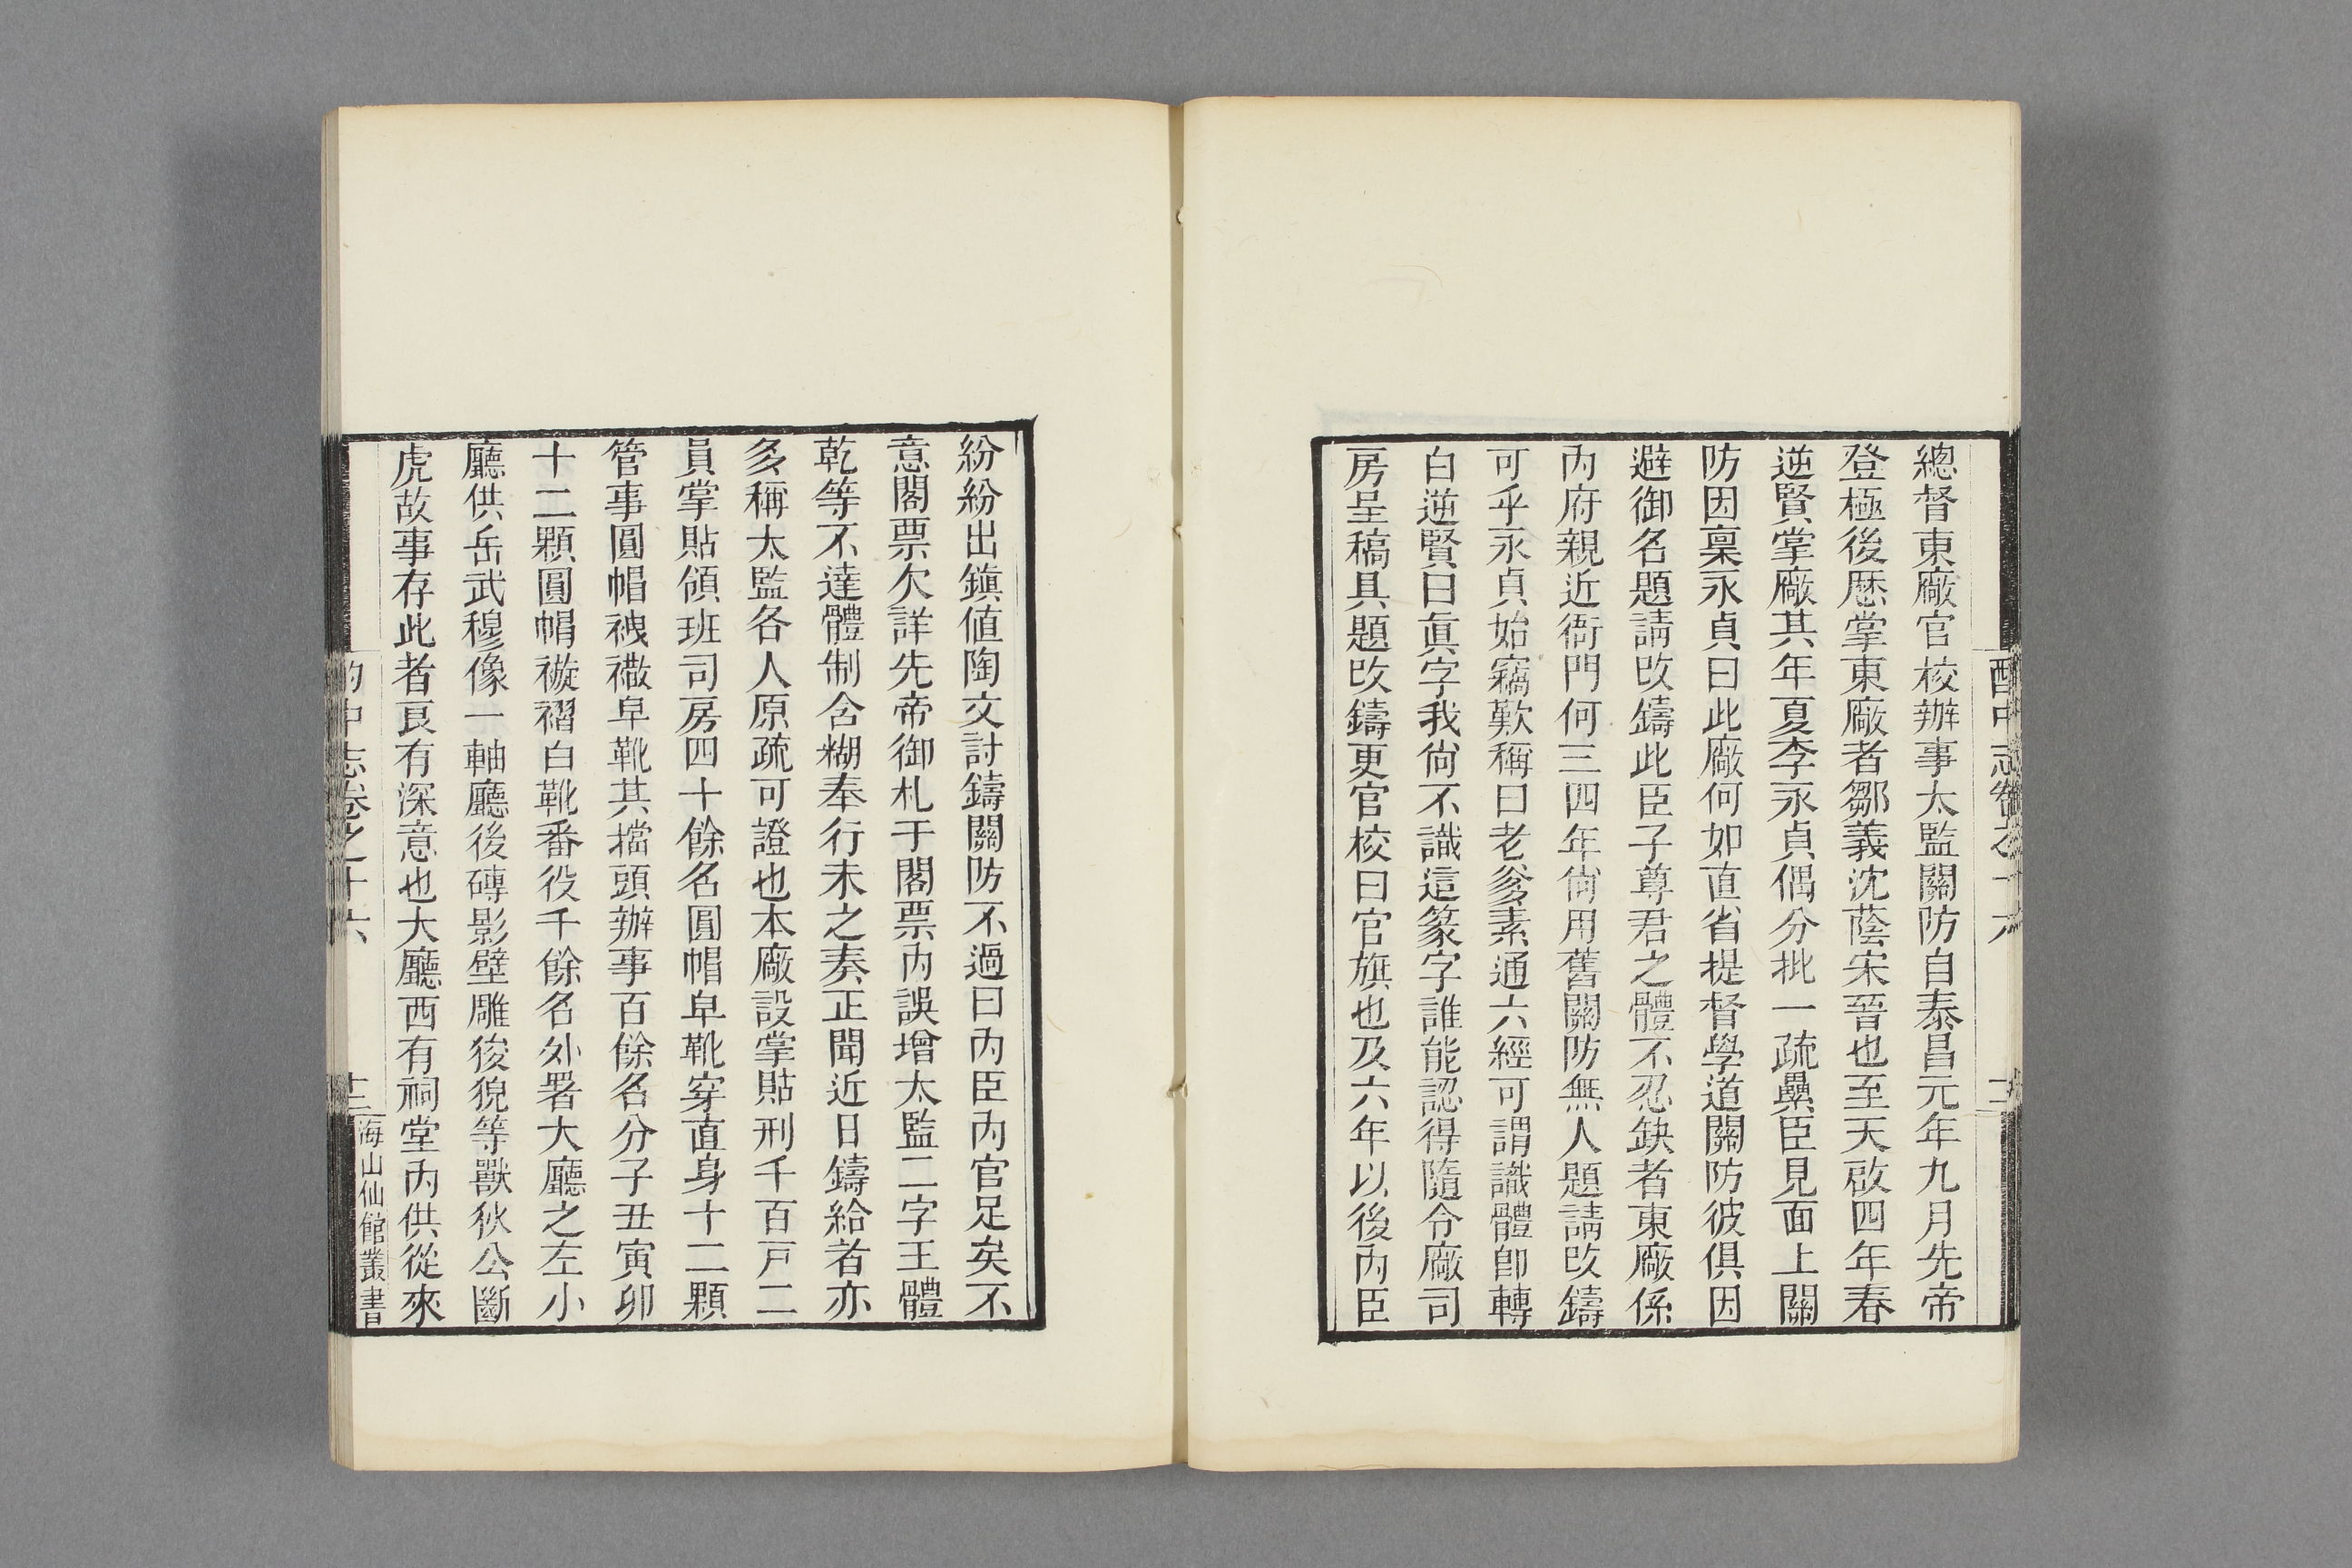 酌中志卷之十六
總督東廠官校辦事太監關防自泰昌元年九月先帝
登極後歴掌東廠者鄒義沈蔭宋晉也至天啟四年春
逆賢掌廠其年夏李永貞偶分批一疏纍臣見面上關
防因稟永貞曰此廠何如直省提督學道關防彼俱因
避御名題請改鑄此臣子尊君之體不忍缺者東廠係
內府親近衙門何三四年尙用舊關防無人題請改鑄
可乎永貞始竊歎稱曰老爹素通六經可謂識體卽轉
白逆賢曰眞字我尙不識這篆字誰能認得隨令廠司
房呈稿具題改鑄更官校曰官旗也及六年以後內臣
紛紛出鎭値陶文討鑄關防不過曰內臣內官足矣不
意閣票欠詳先帝御札于閣票內誤增太監二字王體
乾等不達體制含糊奉行未之奏正聞近日鑄給者亦
多稱太監各人原疏可證也本廠設掌貼刑千百戸二
員掌貼領班司房四十餘名圓帽皁靴穿直身十二顆
管事圓帽襪𧞣皁靴其擋頭辦事百餘名分子丑寅卯
十二顆圓帽䙰褶白靴番役千餘名外署大廳之左小
廳供岳武穆像一軸廳後磚影壁雕狻猊等獸狄公斷
虎故事存此者良有深意也大廳西有祠堂內供從來
酌中志卷之十六
十二
海山仙館叢書